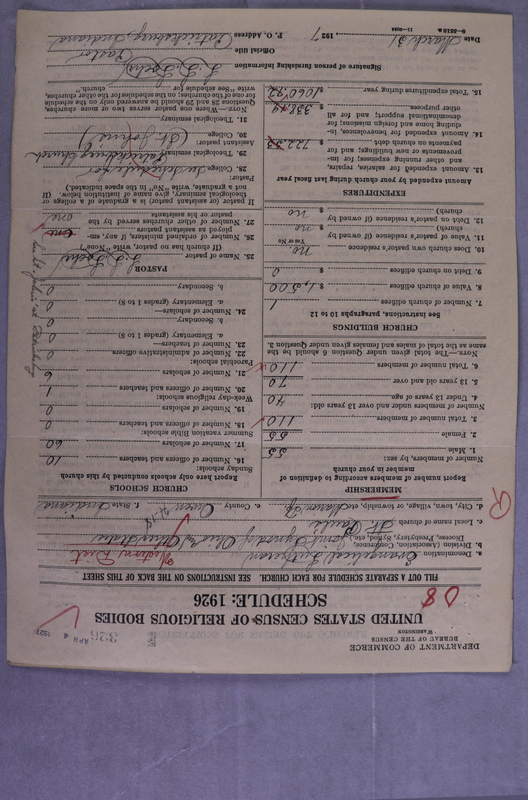 DEPARTMENT OF COMMERCE
BUREAU OF THE CENSUS
WASHINGTON
APR 4 1927
326
UNITED STATES CENSUS OF RELIGIOUS BODIES
SCHEDULE: 1926
FILL OUT A SEPARATE SCHEDULE FOR EACH CHURCH. SEE INSTRUCTIONS ON THE BACK OF THIS SHEET
a. Denomination Evangelical Lutheran Western Dist
b. Division (Association, Conference, Diocese, Presbytery, Synod, etc.) Joint Synod of Ohio and Other States
c. Local name of church St. Paul's
d. City, town, village, or township, of e. County Owen State of Indiana
MEMBERSHIP
Report here number of members according to definition of member in your church
Number of members, by sex:
1. Male 55
2. Female 55
3. Total number of members 110
Number of members under and over 13 years old:
4. Under 13 years of age 40
5. 13 years old and over 70
6. Total number of members 110
NOTE.—The total given under Question 6 should be the same as the total of males and females given under Question 3.
CHURCH BUILDINGS
See instructions, paragraphs 10 to 12
7. Number of church edifices 1
8. Value of church edifices $ 1,500
9. Debt on church edifices $ 0
10. Does church own pastor's residence no
Yes or No
11. Value of pastor's residence (if owned by church) $ no
12. Debt on pastor's residence (if owned by church) $ no
EXPENDITURES
Amount expended by your church during last fiscal year
13. Amount expended for salaries, repairs, and other running expenses; for improvements or new buildings; and for payments on church debt
14. Amount expended for benevolences, including home and foreign missions; for denominational support; and for all other purposes
15. Total expenditures during year
CHURCH SCHOOLS
Report here only schools conducted by this church
Sunday schools:
16. Number of officers and teachers 10
17. Number of scholars 60
Summer vacation Bible schools:
18. Number of officers and teachers 0
19. Number of scholars 0
Week-day religious schools:
20. Number of officers and teachers 1
21. Number of scholars 6
Parochial schools:
22. Number of administrative officers 0
23. Number of teachers—
a. Elementary (grades 1 to 8) 0
b. Secondary 0
24. Number of scholars—
a. Elementary (grades 1 to 8) 0
b. Secondary 0
PASTOR
25. Name of pastor
(If church has no pastor, write "None")
26. Number of other ministers, if any, employed as assistant pastors
27. Number of other churches served by the pastor or his assistants one
If pastor (or assistant pastor) is a graduate of a college or theological seminary, give name of institution below. (If not a graduate, write "No" in the space indicated.)
Pastor:
28. College See Schedule for
29. Theological seminary Patricksburg Church
Assistant pastor:
30. College (St. John's)
31. Theological seminary
NOTE.—Where one pastor serves two or more churches, Questions 25 and 29 should be answered only on the schedule for one of the churches; on the schedules for the other churches, write "See schedule for church."
Signature of person furnishing information
Official title Pastor
P. O. Address Patricksburg, Indiana
Date March 31 1927